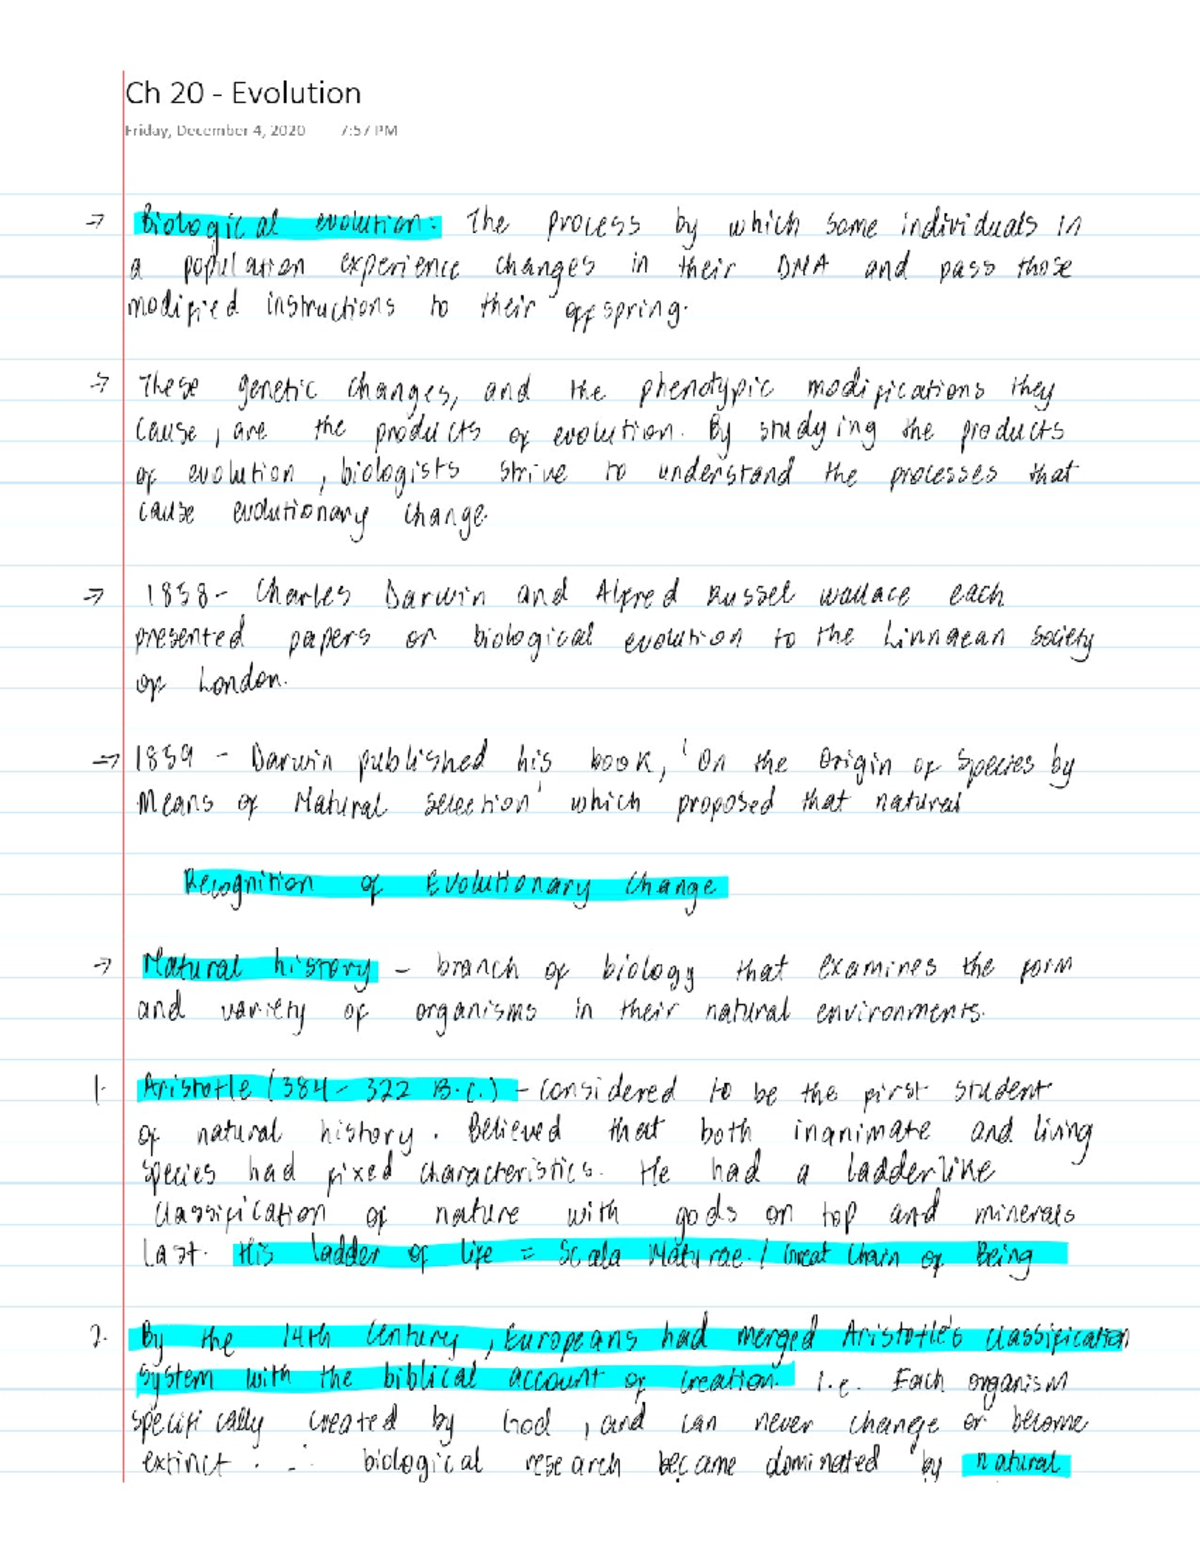 Ch 20 - Evolution
Friday, December 4, 2020 7:57 PM
→ Biological evolution: The process by which some individuals in
a population experience changes in their DNA and pass those
modified instructions to their offspring.
→ These genetic changes, and the phenotypic modifications they
cause, are the products of evolution. By studying the products
of evolution, biologists strive to understand the processes that
cause evolutionary change.
→ 1858- Charles Darwin and Alfred Russel Wallace each
presented papers on biological evolution to the Linnaean Society
of London.
→ 1859 - Darwin published his book, 'On the Origin of Species by
Means of Natural Selection' which proposed that natural
Recognition of Evolutionary Change
→ Natural history - branch of biology that examines the form
and variety of organisms in their natural environments.
1. Aristotle (384- 322 B.C.) - considered to be the first student
of natural history. Believed that both inanimate and living
species had fixed characteristics. He had a ladderlike
classification of nature with gods on top and minerals
last. His ladder of life = Scala Naturae. / Great Chain of Being
2. By the 14th Century, Europeans had merged Aristotle's classification
system with the biblical account of creation. I.e. Each organism
specifically created by God, and can never change or become
extinct. ∴ biological research became dominated by natural